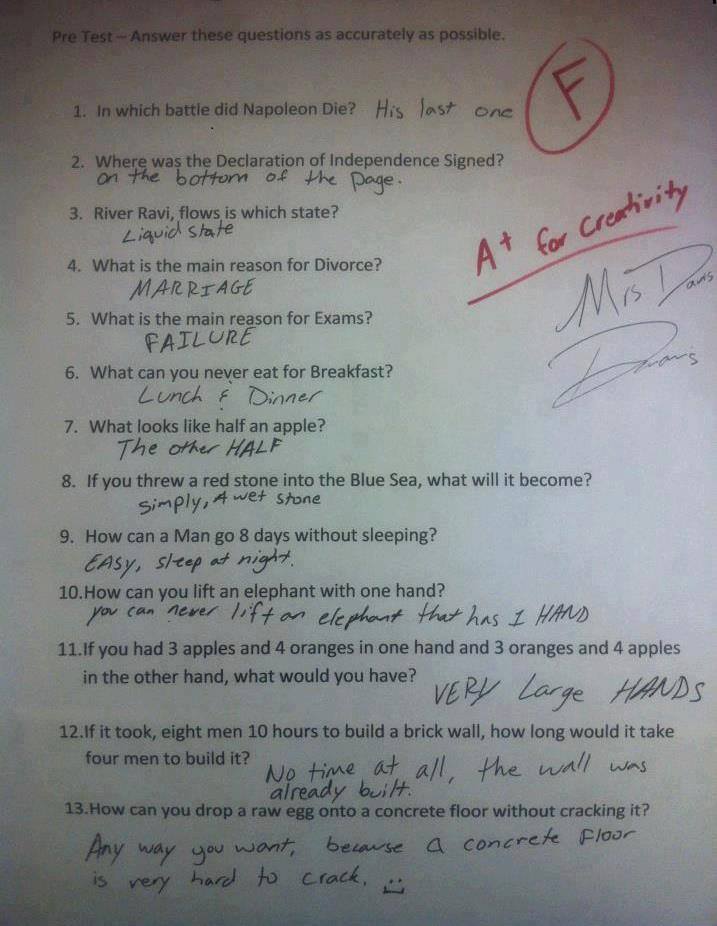 Pre Test – Answer these questions as accurately as possible.
F
1. In which battle did Napoleon Die? His last one
2. Where was the Declaration of Independence Signed?
on the bottom of the page.
3. River Ravi, flows is which state?
Liquid state
A+ for Creativity
4. What is the main reason for Divorce?
MARRIAGE
Mrs Davis
5. What is the main reason for Exams?
FAILURE
6. What can you never eat for Breakfast?
Lunch & Dinner
7. What looks like half an apple?
The other HALF
8. If you threw a red stone into the Blue Sea, what will it become?
simply, A wet stone
9. How can a Man go 8 days without sleeping?
EASY, sleep at night.
10.How can you lift an elephant with one hand?
you can never lift an elephant that has 1 HAND
11.If you had 3 apples and 4 oranges in one hand and 3 oranges and 4 apples
in the other hand, what would you have?
VERY Large HANDS
12.If it took, eight men 10 hours to build a brick wall, how long would it take
four men to build it?
No time at all, the wall was
already built.
13.How can you drop a raw egg onto a concrete floor without cracking it?
Any way you want, because a concrete Floor
is very hard to crack. :)